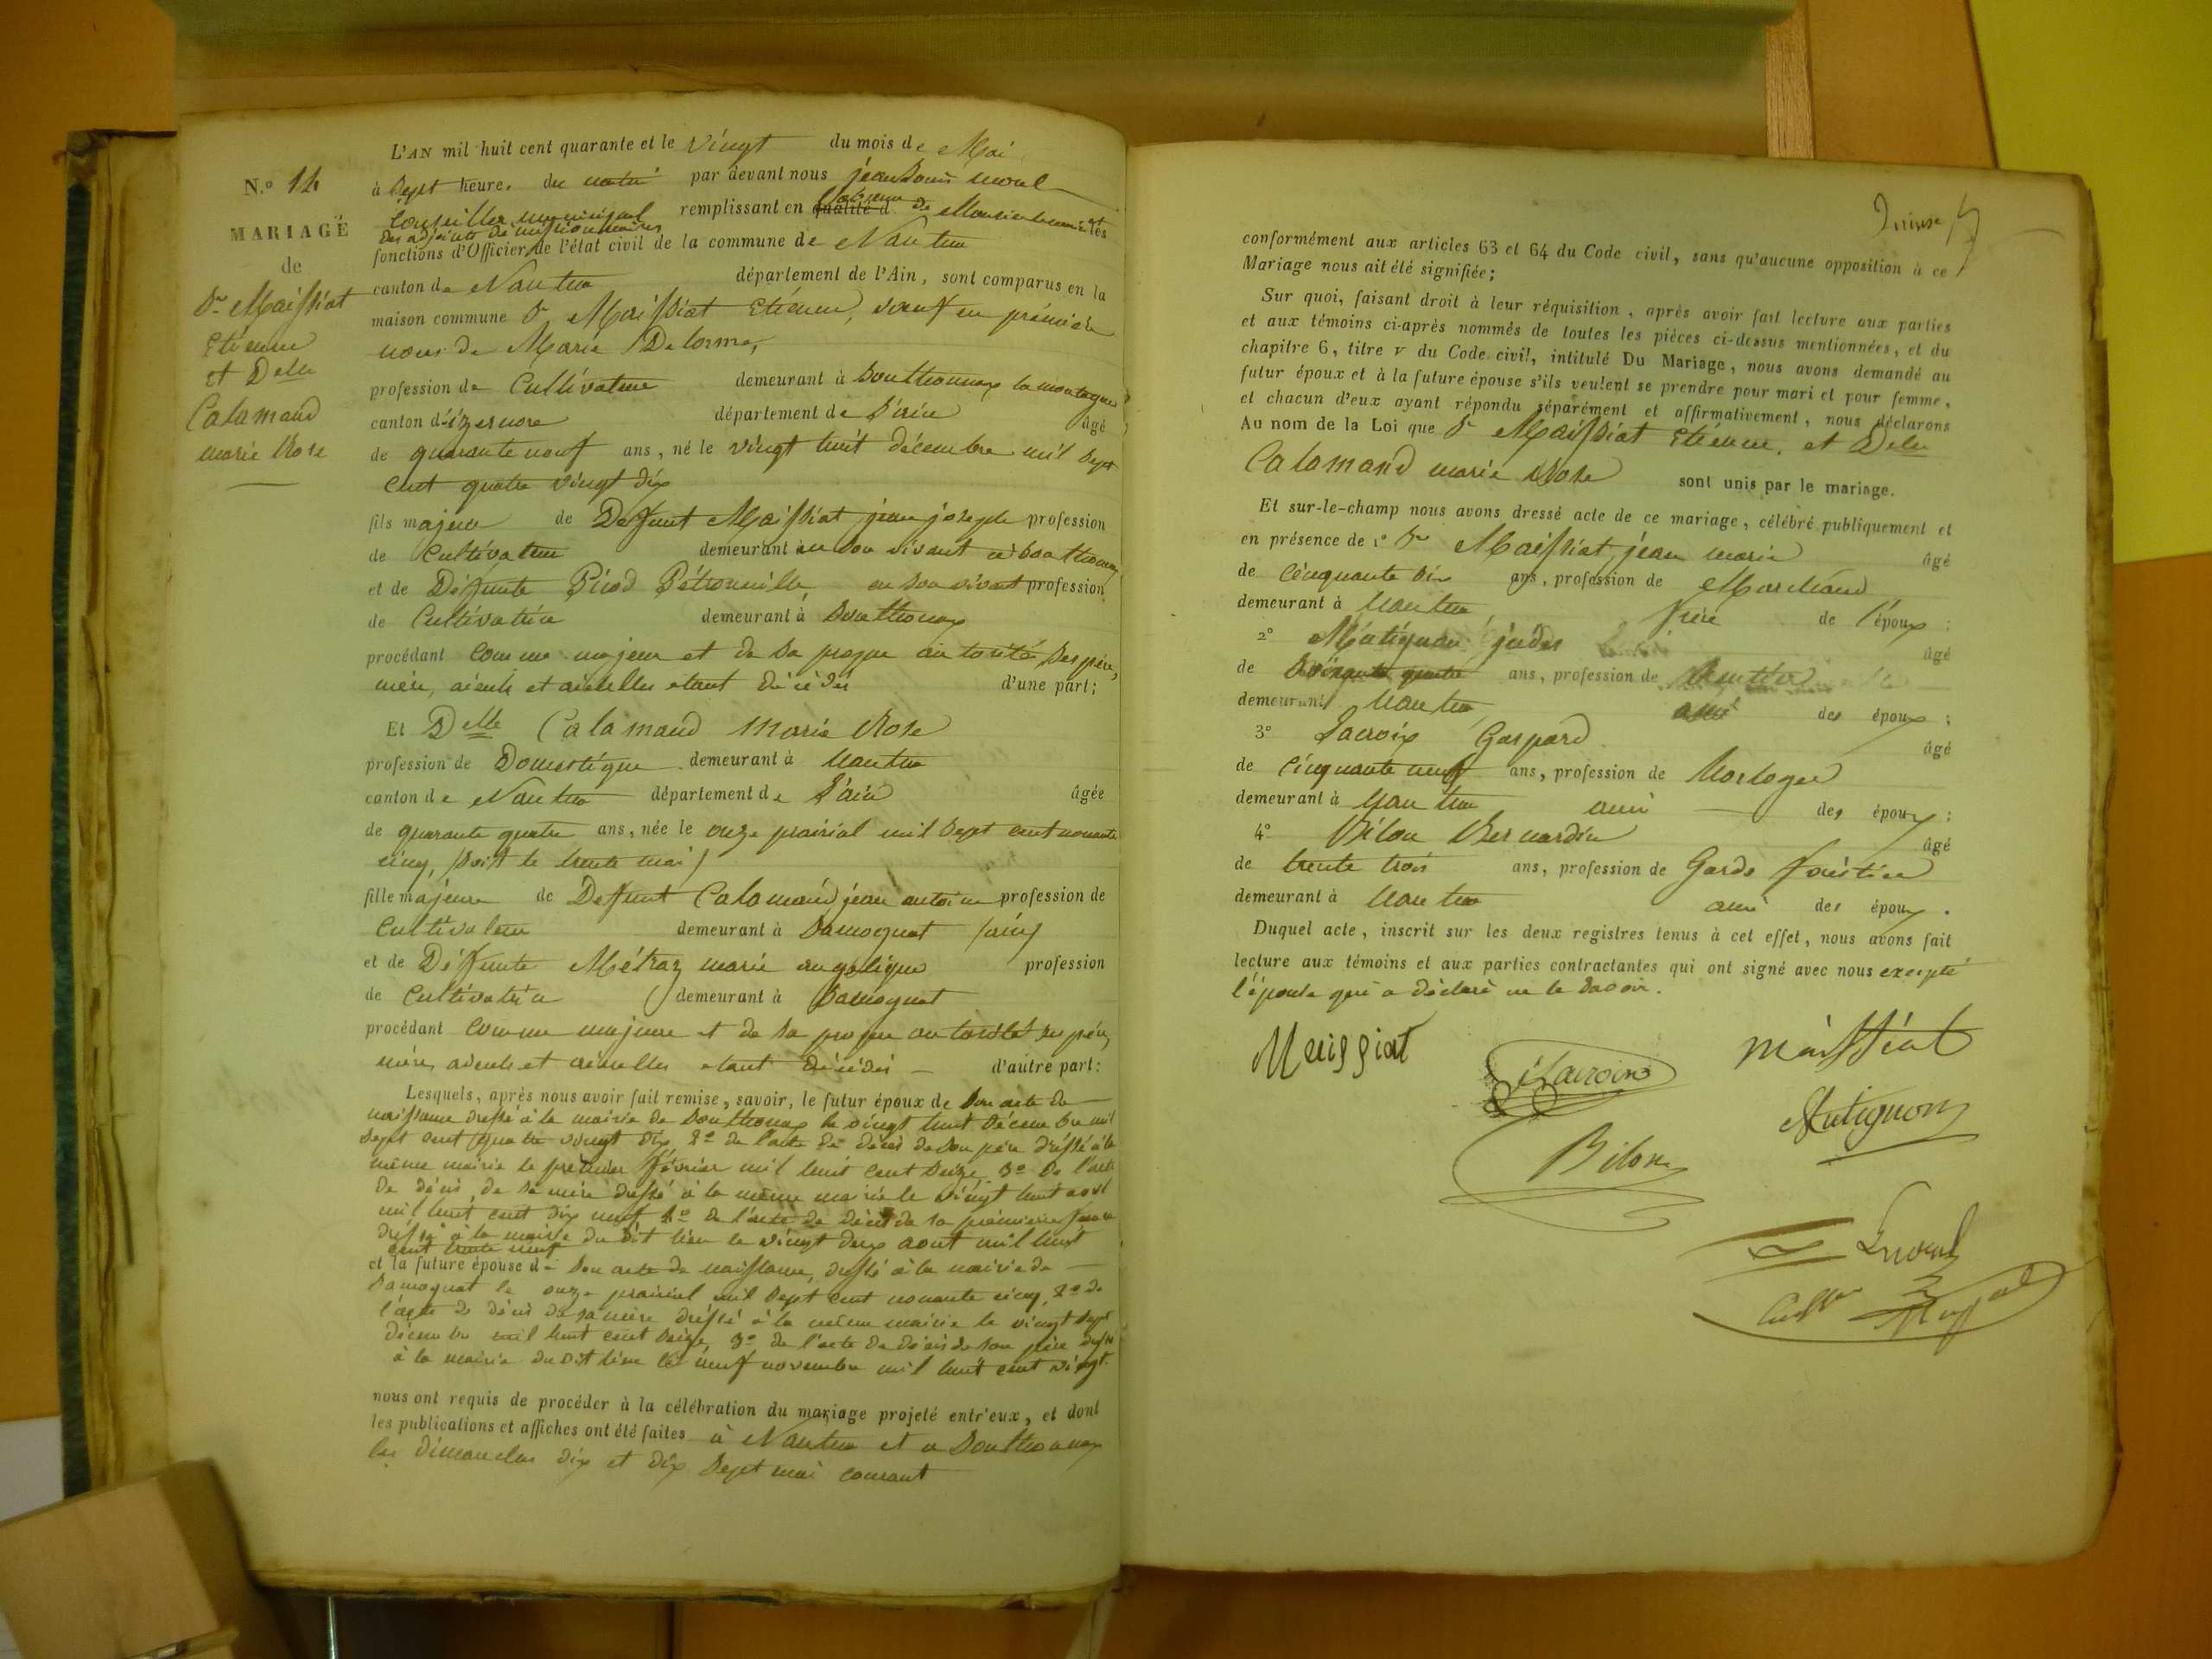 L'AN mil huit cent quarante et le vingt du mois de Mai
N.º 14
à Sept heure. du matin par devant nous jean Louis
Conseiller municipal remplissant en qualité d l'absence de Monsieur le maire et
des adjoints démissionnaires les
MARIAGE
fonctions d'Officier de l'état civil de la commune de Nantua
de
canton de Nantua département de l'Ain, sont comparus en la
Sr Maissiat
maison commune Sr Maissiat Etienne, veuf en première
Etienne
noces de Marie Delorme,
et Delle
profession de Cultivateur demeurant à Sonthonnax la montagne
Calamand
canton d'izernore département de L'ain âgé
marie Rose
de quarante neuf ans, né le vingt huit décembre mil sept
cent quatre vingt dix
fils majeur de Defunt Maissiat jean joseph profession
de Cultivateur demeurant en son vivant à Sonthonnax
et de Défunte Picod Pétronille, en son vivant profession
de Cultivatrice demeurant à Sonthonax
procédant comme majeur et de sa propre autorité ses père,
mère, aieuls et aieulles etant décédés d'une part;
Et Delle Calamand Marie Rose
profession de Domestique demeurant à Nantua
canton de Nantua département de L'ain âgée
de quarante quatre ans, née le onze prairial mil sept cent nonante
cinq, (soit le trente mai)
fille majeure de Defunt Calamand jean antoine profession de
Cultivateur demeurant à Samognat (ain)
et de Défunte Métraz marie angelique profession
de Cultivatrice demeurant à Samognat
procédant comme majeure et de sa propre autorité ses père,
mère, aieuls et aieulles etant décédés d'autre part:
Lesquels, après nous avoir fait remise, savoir, le futur époux de Son acte de
naissance dressé à la mairie de Sonthonax le vingt huit décembre mil
sept cent quatre vingt dix, 2º de l'acte de décès de son père dressé à la
même mairie le premier février mil huit cent seize, 3º de l'acte
de décès de sa mère dressé à la même mairie le vingt huit aout
mil huit cent dix neuf 4º de l'acte de décès de sa première femme
dressé à la mairie du dit lieu le vingt deux aout mil huit
cent trente neuf
et la future épouse de Son acte de naissance, dressé à la mairie de
Samognat le onze prairial mil sept cent nonante cinq, 2º de
l'acte de décès de sa mère dréssé à la même mairie le vingt sept
décembre mil huit cent seize, 3º de l'acte de décès de son père dressé
à la mairie du dit lieu le neuf novembre mil huit cent vingt.
nous ont requis de procéder à la célébration du mariage projeté entr'eux, et dont
les publications et affiches ont été faites à Nantua et a Sonthonax
les dimanches dix et dix sept mai courant
conformément aux articles 63 et 64 du Code civil, sans qu'aucune opposition à ce
Mariage nous ait été signifiée;
Sur quoi, faisant droit à leur réquisition, après avoir fait lecture aux parties
et aux témoins ci-après nommés de toutes les pièces ci-dessus mentionnées, et du
chapitre 6, titre v du Code civil, intitulé Du Mariage, nous avons demandé au
futur époux et à la future épouse s'ils veulent se prendre pour mari et pour femme,
et chacun d'eux ayant répondu séparément et affirmativement, nous déclarons
Au nom de la Loi que Sr Maissiat Etienne, et Delle
Calamand marie Rose sont unis par le mariage.
Et sur-le-champ nous avons dressé acte de ce mariage, célébré publiquement et
en présence de 1º Sr Maissiat jean marie âgé
de cinquante six ans, profession de Marchand
demeurant à Nantua frère de l'époux;
2º Mutignon judes âgé
de soixante quatre ans, profession de Rentier
demeurant Nantua ami des époux;
3º Lacroix Gaspard âgé
de cinquante neuf ans, profession de horloger
demeurant à Nantua ami des époux;
4º Bilon Bernardin âgé
de trente trois ans, profession de Garde foréstier
demeurant à Nantua ami des époux.
Duquel acte, inscrit sur les deux registres tenus à cet effet, nous avons fait
lecture aux témoins et aux parties contractantes qui ont signé avec nous excepté
l'épouse qui a déclaré ne le savoir.
Maissiat
Lacroix
maissiat
Mutignon
Bilon